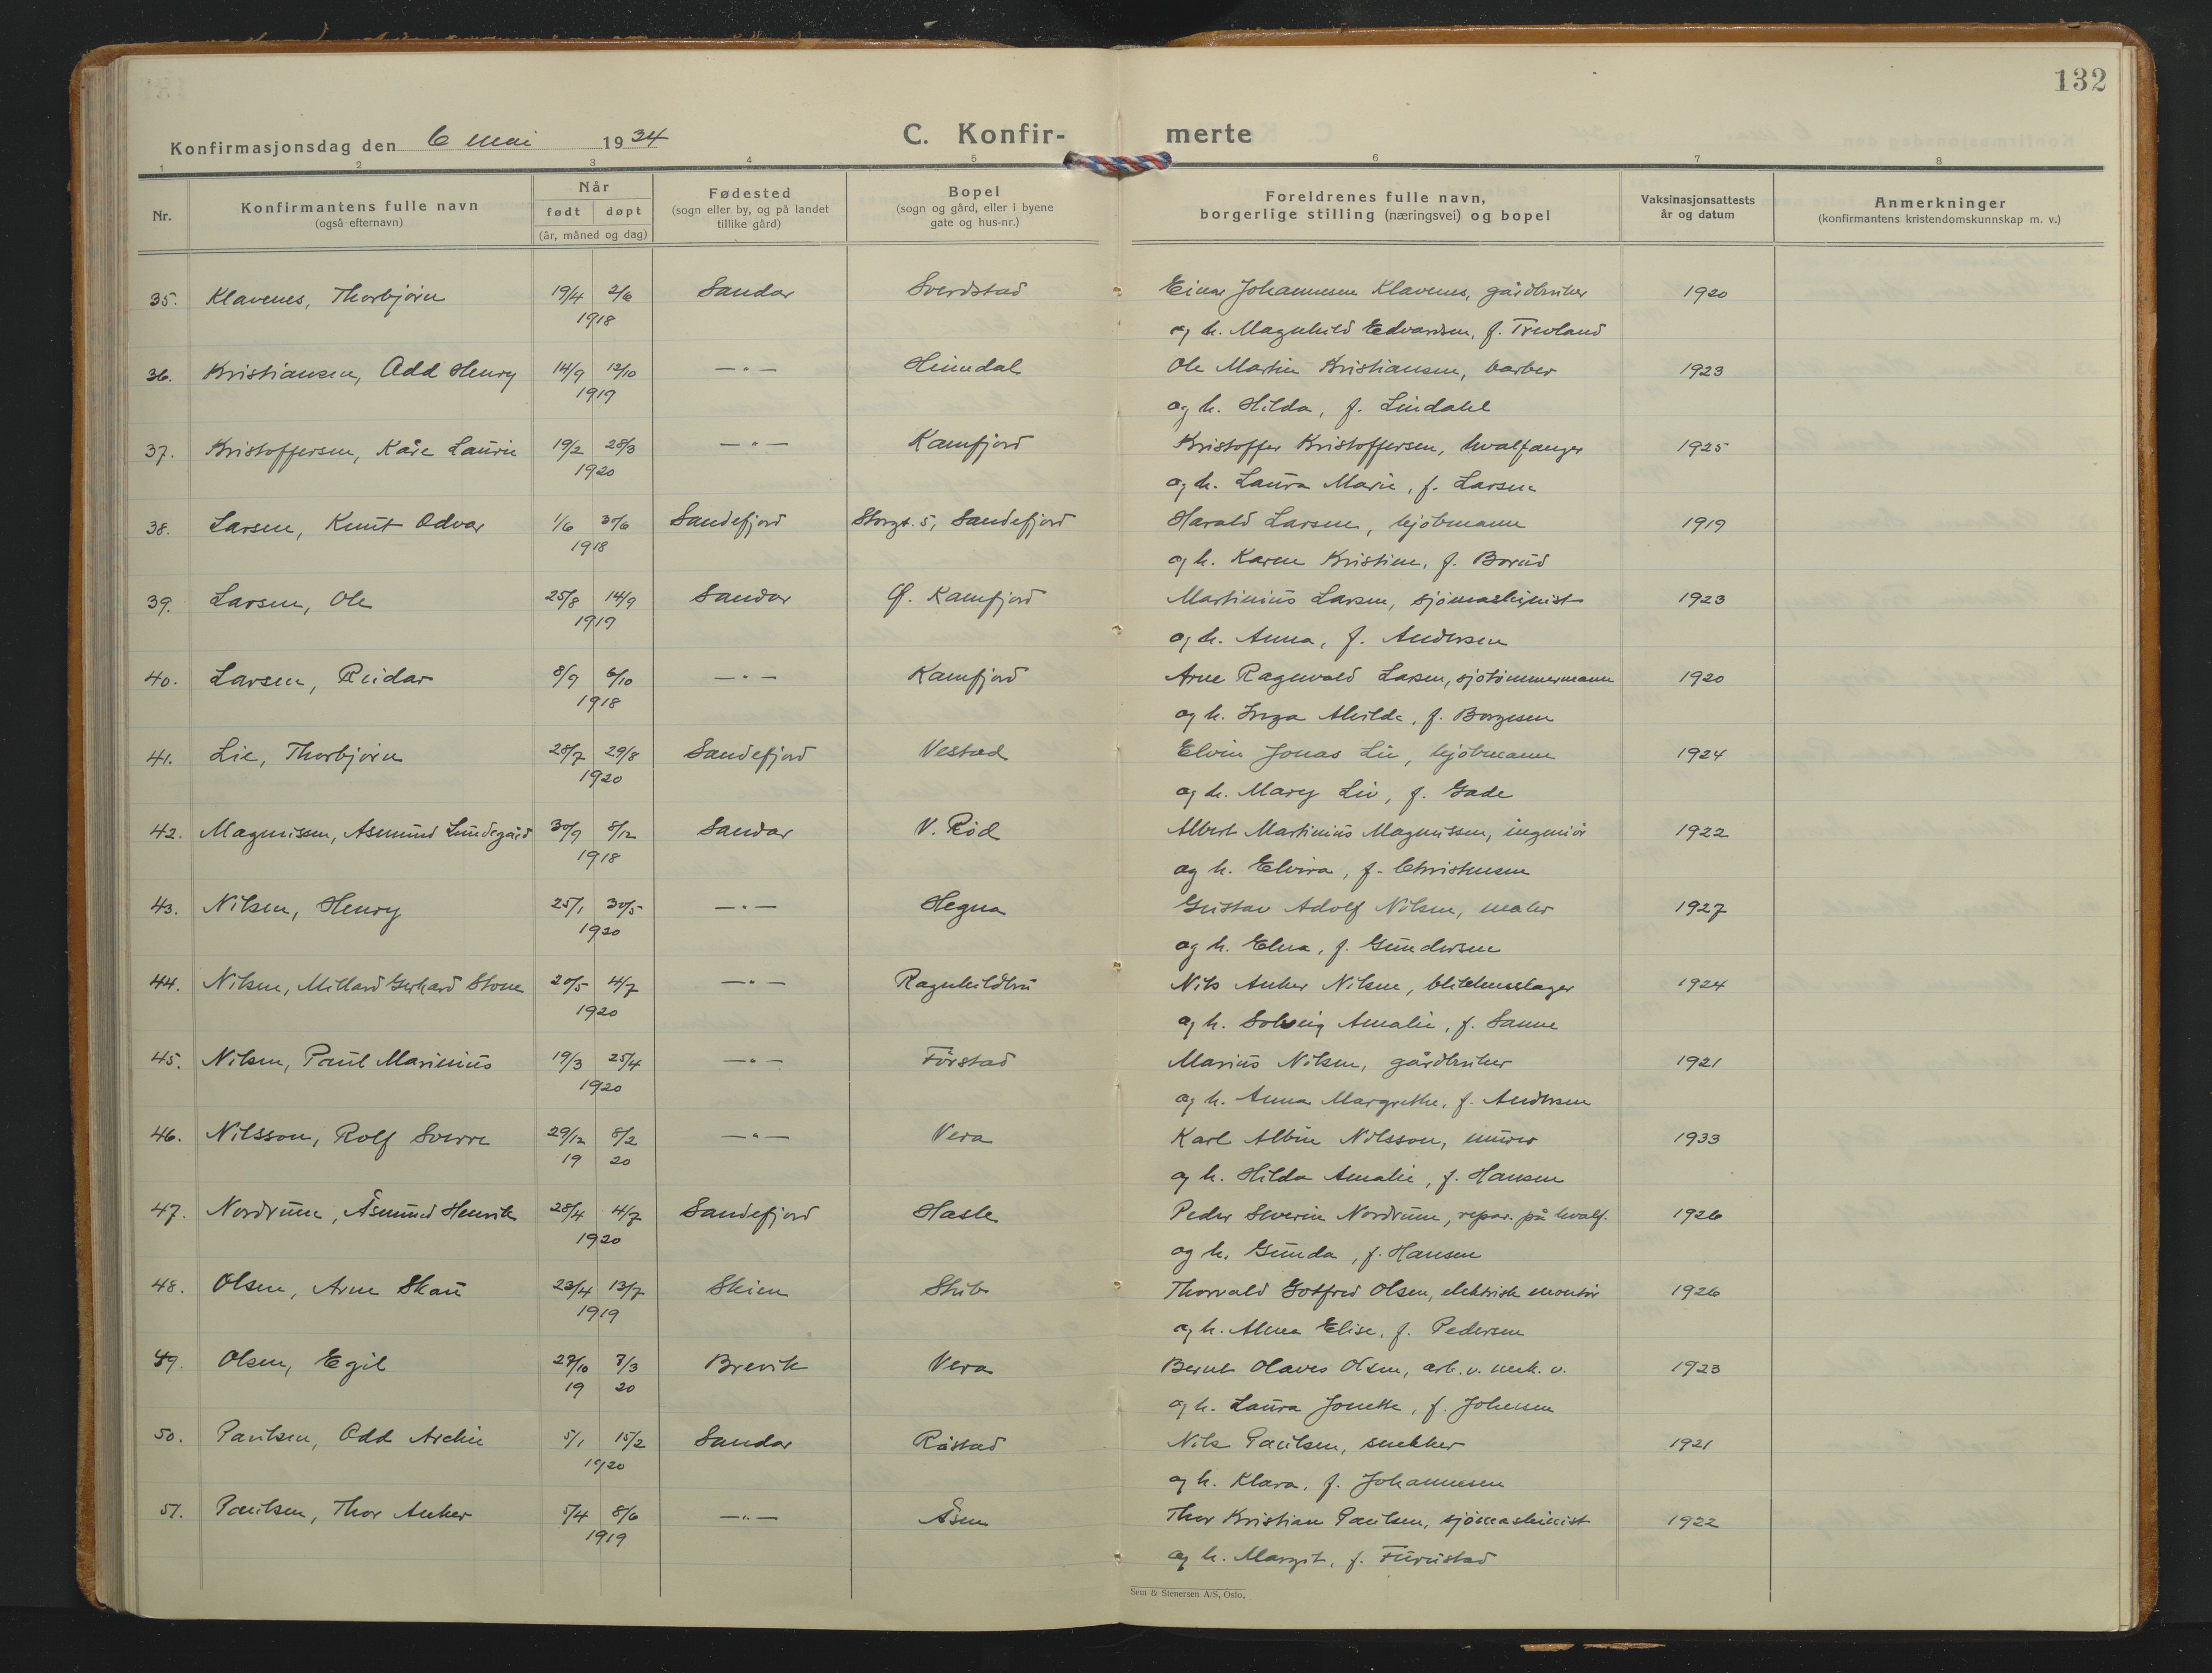 132
Konfirmasjonsdag den 6 mai 1934
C. Konfir- merte
1 2 3 4 5 6 7 8
Nr.
Konfirmantens fulle navn
(også efternavn)
Når
født døpt
(år, måned og dag)
Fødested
(sogn eller by, og på landet
tillike gård)
Bopel
(sogn og gård, eller i byene
gate og hus-nr.)
Foreldrenes fulle navn,
borgerlige stilling (næringsvei) og bopel
Vaksinasjonsattests
år og datum
Anmerkninger
(konfirmantens kristendomskunnskap m. v.)
35. Klavenes, Thorbjørn 19/4 2/6 Sandar Sverdstad Einar Johannesen Klavenes, gårdbruker 1920
1918 og h. Magnhild Edvardsen, f. Trevland
36. Kristiansen, Odd Henry 14/9 12/10 — " — Heimdal Ole Martin Kristiansen, barber 1923
1919 og h. Hilda, f. Lindahl
37. Kristoffersen, Kåre Laurin 19/2 28/3 — " — Kamfjord Kristoffer Kristoffersen, hvalfanger 1925
1920 og h. Laura Marie, f. Larsen
38. Larsen, Knut Odvar 1/6 30/6 Sandefjord Storgt. 5, Sandefjord Harald Larsen, kjøbmann 1919
1918 og h. Karen Kristine, f. Borud
39. Larsen, Ole 25/8 14/9 Sandar Ø. Kamfjord Martinius Larsen, sjømaskinist 1923
1919 og h. Anna, f. Andersen
40. Larsen, Reidar 8/9 6/10 — " — Kamfjord Arne Ragnvald Larsen, sjøtømmermann 1920
1918 og h. Inga Alvilde, f. Borgesen
41. Lie, Thorbjørn 28/7 29/8 Sandefjord Vestad Elvin Jonas Lie, kjøbmann 1924
1920 og h. Mary Liv, f. Gade
42. Magnussen, Asmund Lundegård 30/9 8/12 Sandar V. Rød Albert Martinius Magnussen, ingeniør 1922
1918 og h. Elvira, f. Christensen
43. Nilsen, Henry 25/1 30/5 — " — Hegna Gustav Adolf Nilsen, maler 1927
1920 og h. Elna, f. Gundersen
44. Nilsen, Millard Gerhard Stone 20/5 4/7 — " — Ragnhildbru Nils Anker Nilsen, blikkenslager 1924
1920 og h. Solveig Amalie, f. Sanne
45. Nilsen, Paul Marinius 19/3 25/4 — " — Førstad Marius Nilsen, gårdbruker 1921
1920 og h. Anna Margrethe, f. Andersen
46. Nilsson, Rolf Sverre 29/12 8/2 — " — Vera Karl Albin Nilsson, murer 1933
19 20 og h. Hilda Amalie, f. Hansen
47. Nordrum, Åsmund Henrik 28/4 4/7 Sandefjord Hasle Peder Severin Nordrum, repar. på hvalf. 1926
1920 og h. Gunda, f. Hansen
48. Olsen, Arne Skau 23/4 13/7 Skien Stub Thorvald Gotfred Olsen, elektrisk montør 1926
1919 og h. Alma Elise, f. Pedersen
49. Olsen, Egil 27/10 7/3 Brevik Vera Bernt Olaves Olsen, arb. v. mek. v. 1923
19 20 og h. Laura Jonette, f. Johensen
50. Paulsen, Odd Archie 5/1 15/2 Sandar Råstad Nils Paulsen, snekker 1921
1920 og h. Klara, f. Johannesen
51. Paulsen, Thor Anker 5/4 8/6 — " — Åsen Thor Kristian Paulsen, sjømaskinist 1922
1919 og h. Margit, f. Furustad
Sem & Stenersen A/S, Oslo.